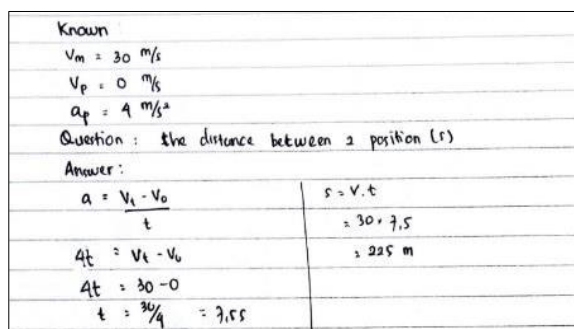 Known
Vm = 30 m/s
Vp = 0 m/s
ap = 4 m/s²
Question : the distance between 2 position (s)
Answer :
a = Vt - V0 / t
4t = Vt - V0
4t = 30 - 0
t = 30/4 = 7,5 s
s = V.t
= 30 × 7,5
= 225 m